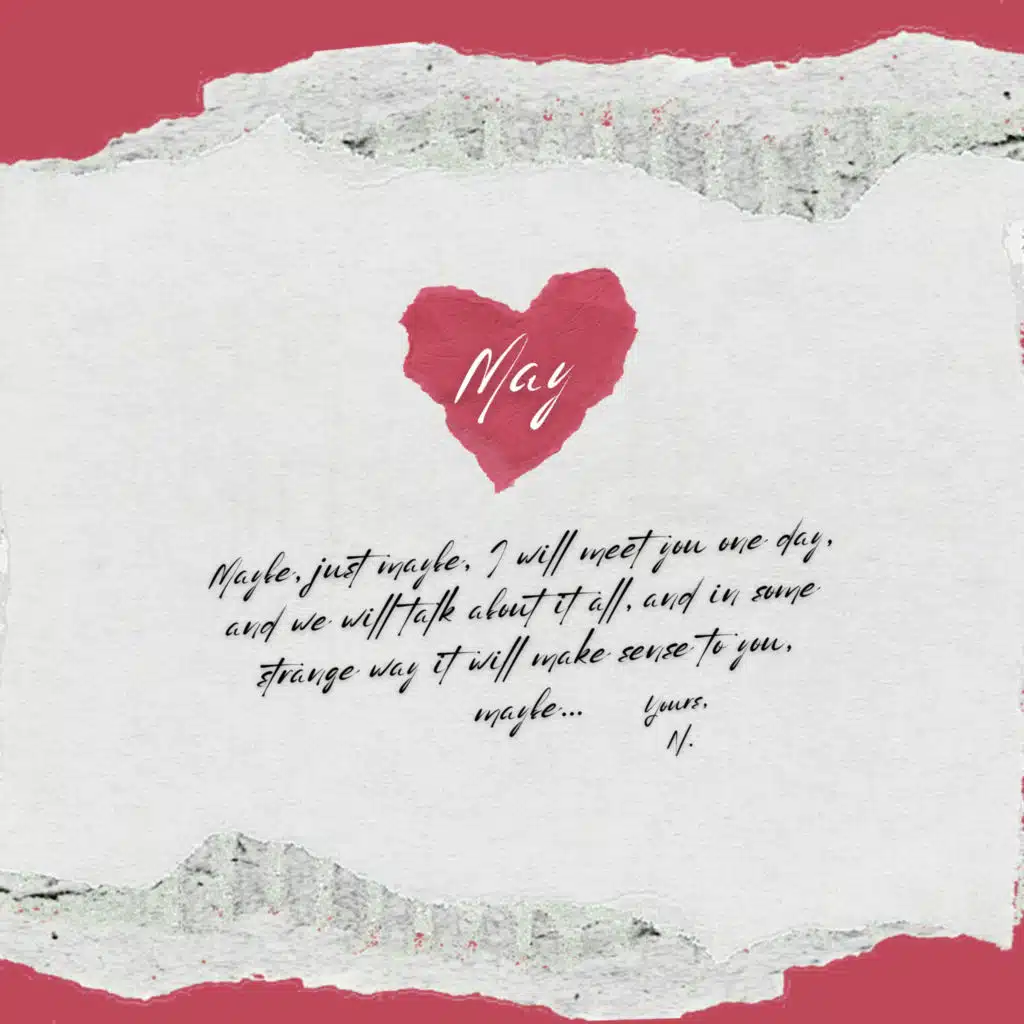 May
Maybe, just maybe, I will meet you one day,
and we will talk about it all, and in some
strange way it will make sense to you,
maybe...
Yours,
N.